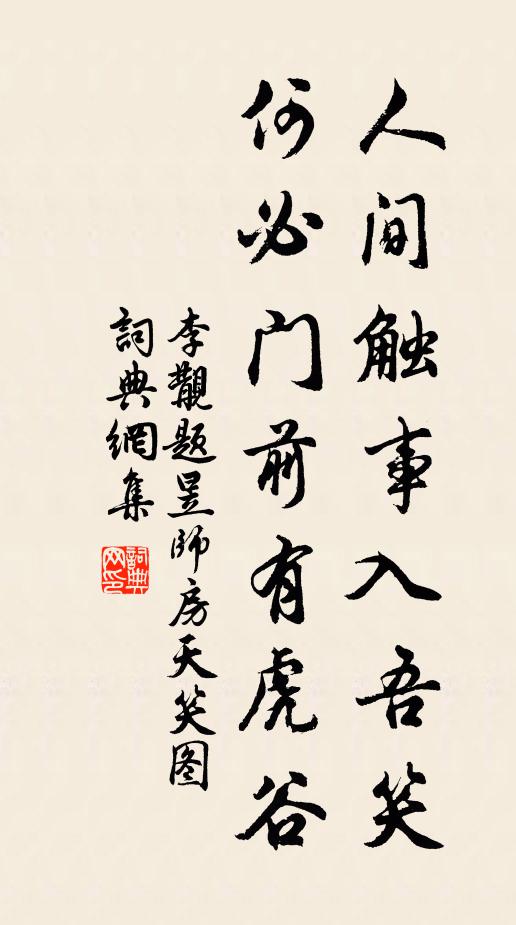 人间触事入吾笑
何必门前有虎谷
李觏题昱师房天笑图
詞典網集
詞典网印